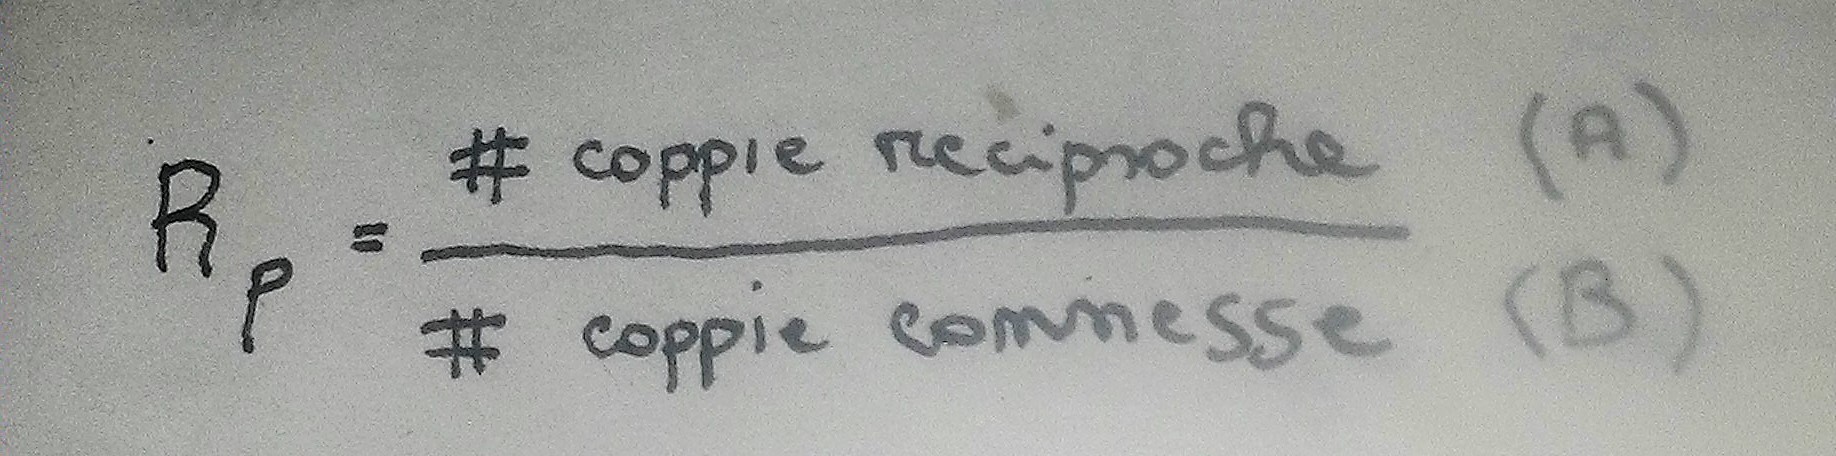 # coppie reciproche (A)
Rp =
# coppie connesse (B)